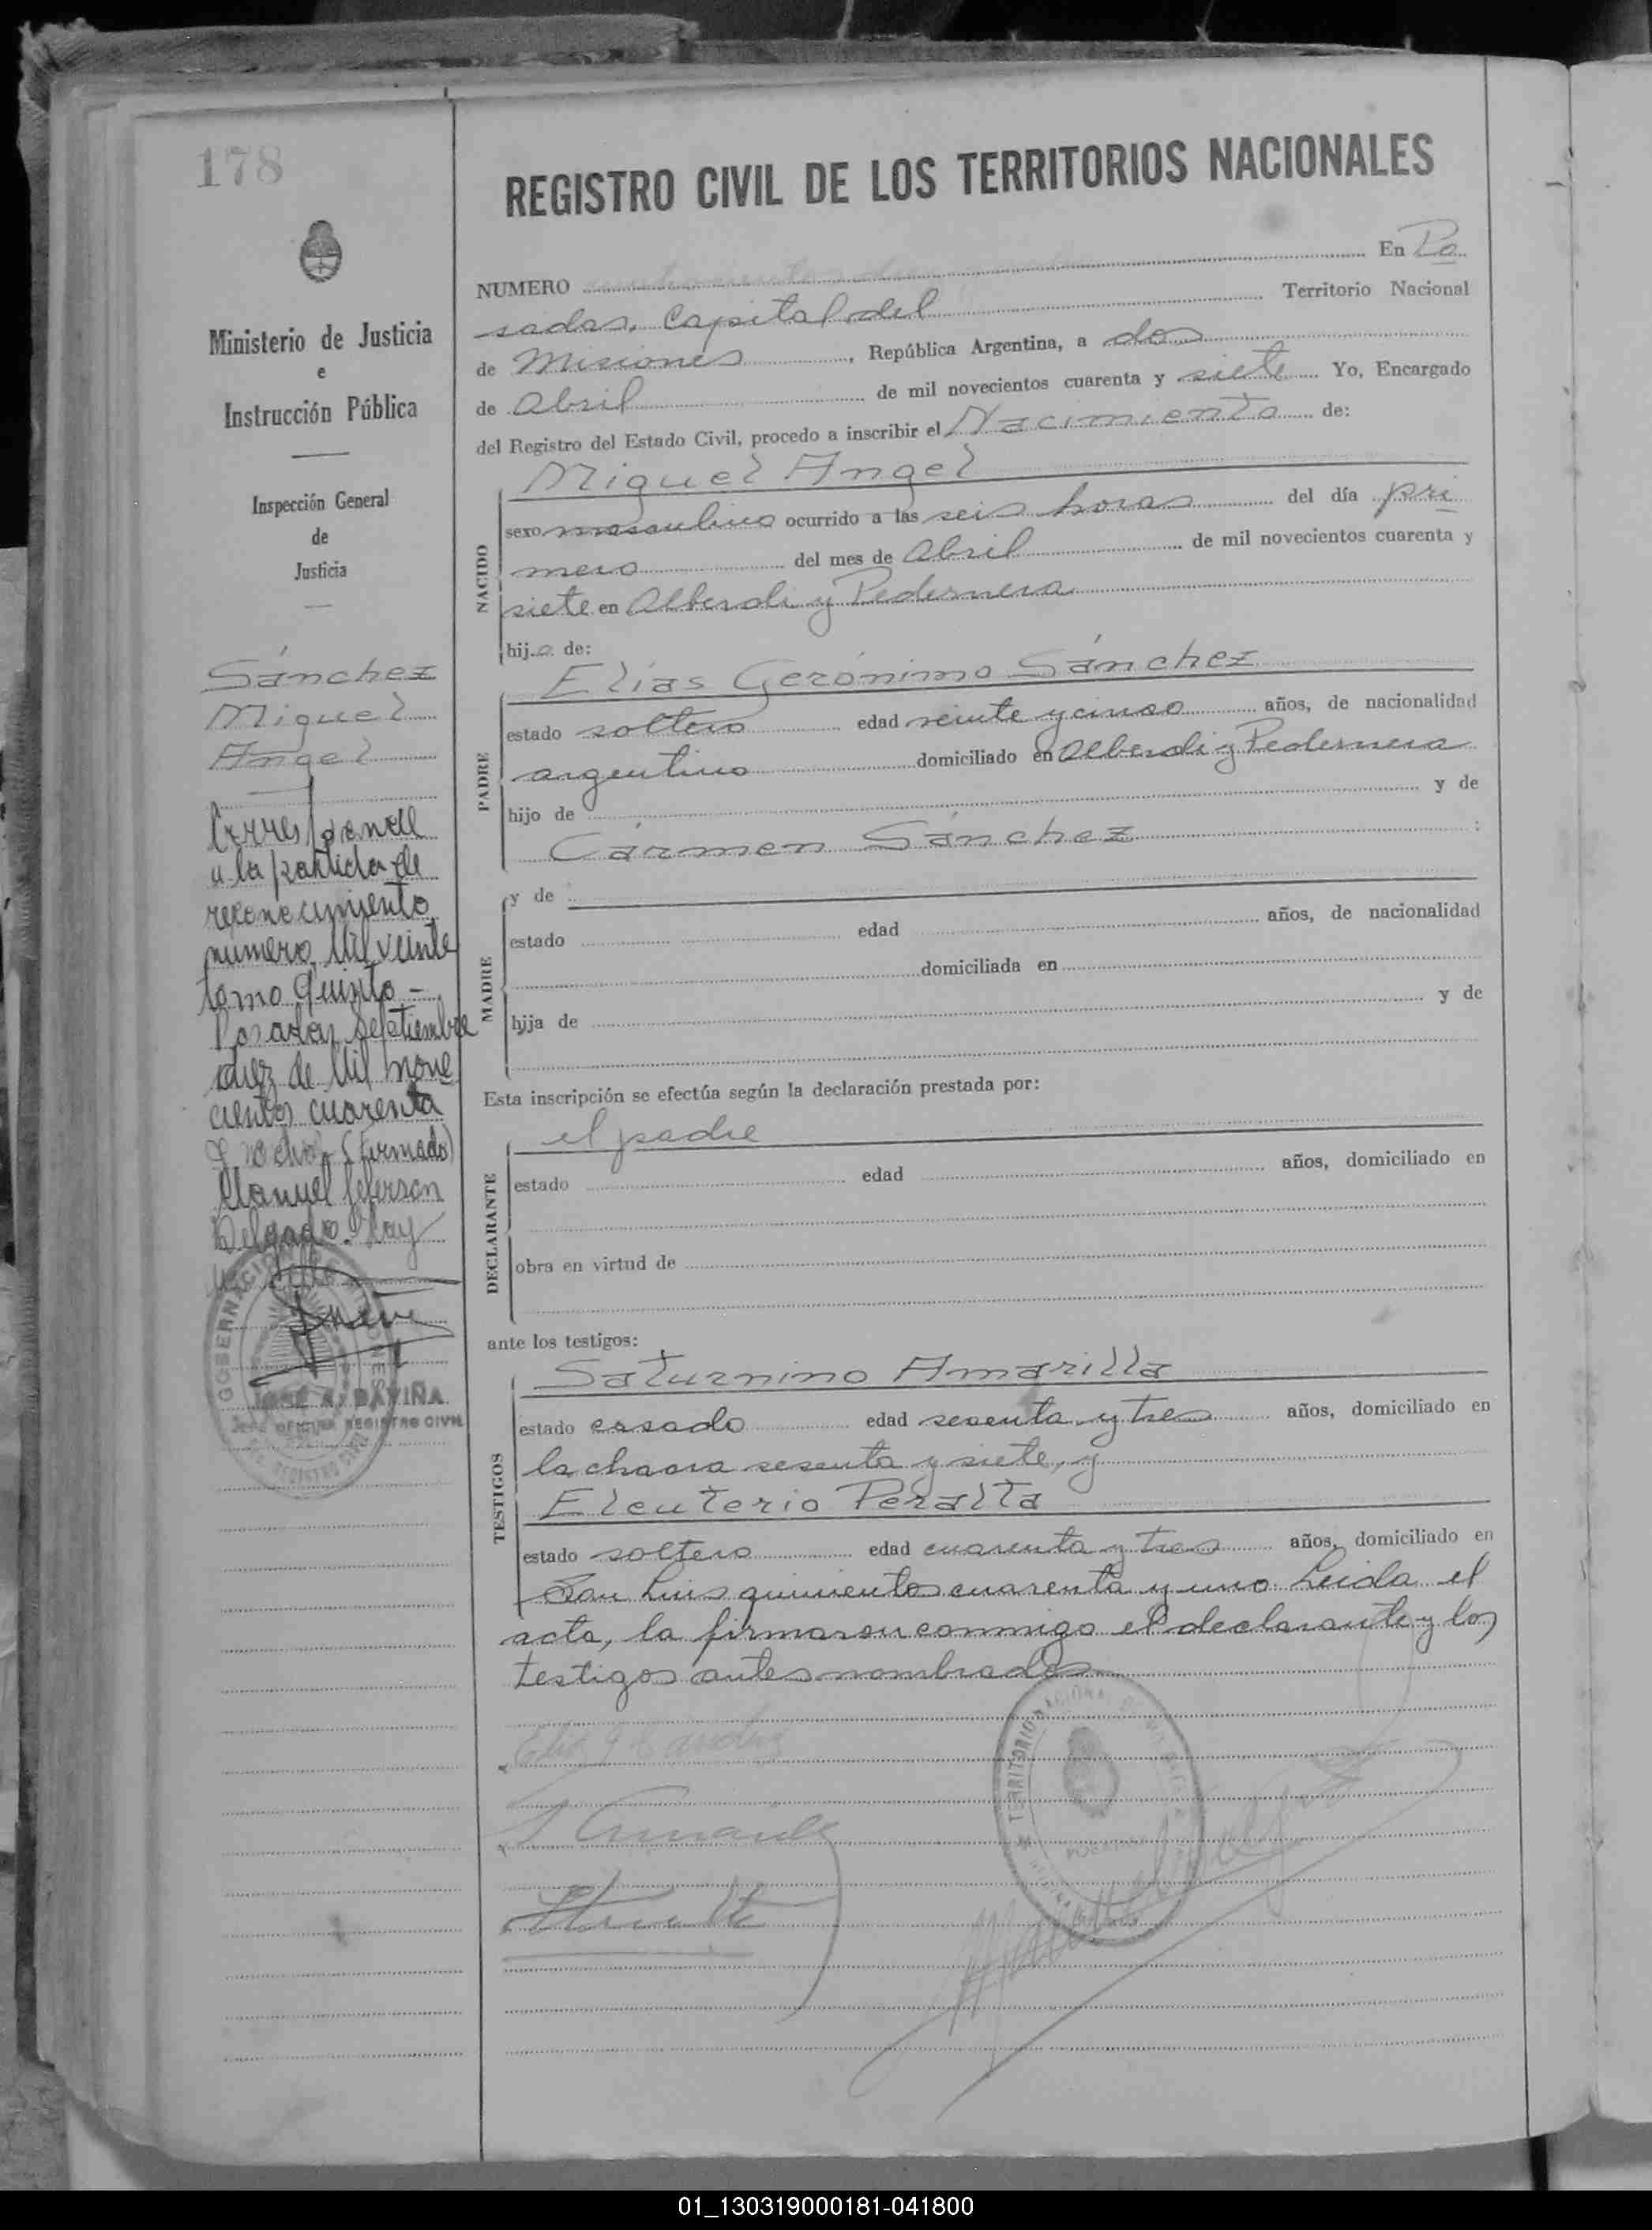 178
Ministerio de Justicia
e
Instrucción Pública
Inspección General
de
Justicia
Sánchez
Miguel
Angel
Corresponde
a la partida de
reconocimiento
numero Mil veinte
tomo Quinto -
Posadas, Septiembre
diez de Mil nove
cientos cuarenta
y ocho - (firmado)
Manuel Jeferson
Delgado. Hay
un sello
JOSÉ A. DAVIÑA
JEFE OFICINA REGISTRO CIVIL
REGISTRO CIVIL DE LOS TERRITORIOS NACIONALES
NUMERO En Po
sadas, Capital del Territorio Nacional
de Misiones, República Argentina, a dos
de Abril de mil novecientos cuarenta y siete Yo, Encargado
del Registro del Estado Civil, procedo a inscribir el Nacimiento de:
Miguel Angel
NACIDO
sexo masculino ocurrido a las seis horas del día pri
mero del mes de Abril de mil novecientos cuarenta y
siete en Alberdi y Pedernera
hijo de:
Elías Gerónimo Sánchez
PADRE
estado soltero edad veinte y cinco años, de nacionalidad
argentino domiciliado en Alberdi y Pedernera
hijo de y de
Cármen Sánchez :
MADRE
y de
estado edad años, de nacionalidad
domiciliada en
hija de y de
Esta inscripción se efectúa según la declaración prestada por:
el padre
DECLARANTE
estado edad años, domiciliado en
obra en virtud de
ante los testigos:
Saturnino Amarilla
TESTIGOS
estado casado edad sesenta y tres años, domiciliado en
la chacra sesenta y siete, y
Eleuterio Peralta
estado soltero edad cuarenta y tres años, domiciliado en
San Luis quinientos cuarenta y uno. Leida el
acta, la firmaron conmigo el declarante y los
testigos antes nombrados
01_130319000181-041800